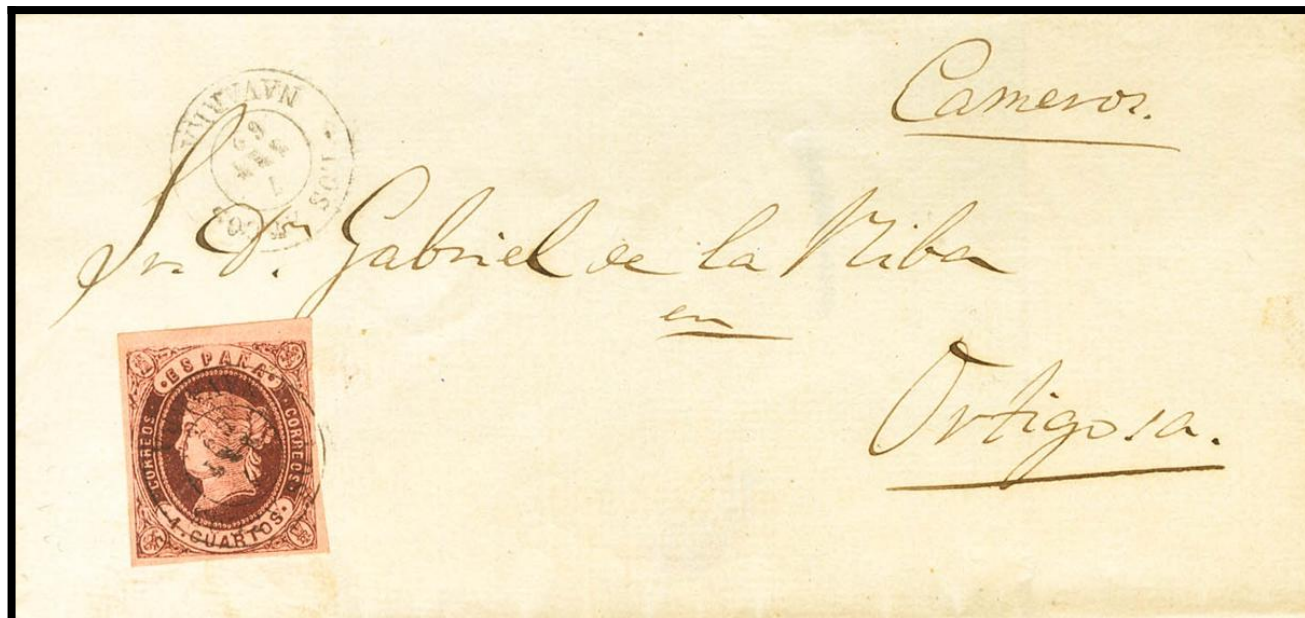 Cameros.
NAVARRA
LOS
Sr. Dn. Gabriel de la Riba
en
Ortigosa.
ESPAÑA
CORREOS
CORREOS
4 CUARTOS